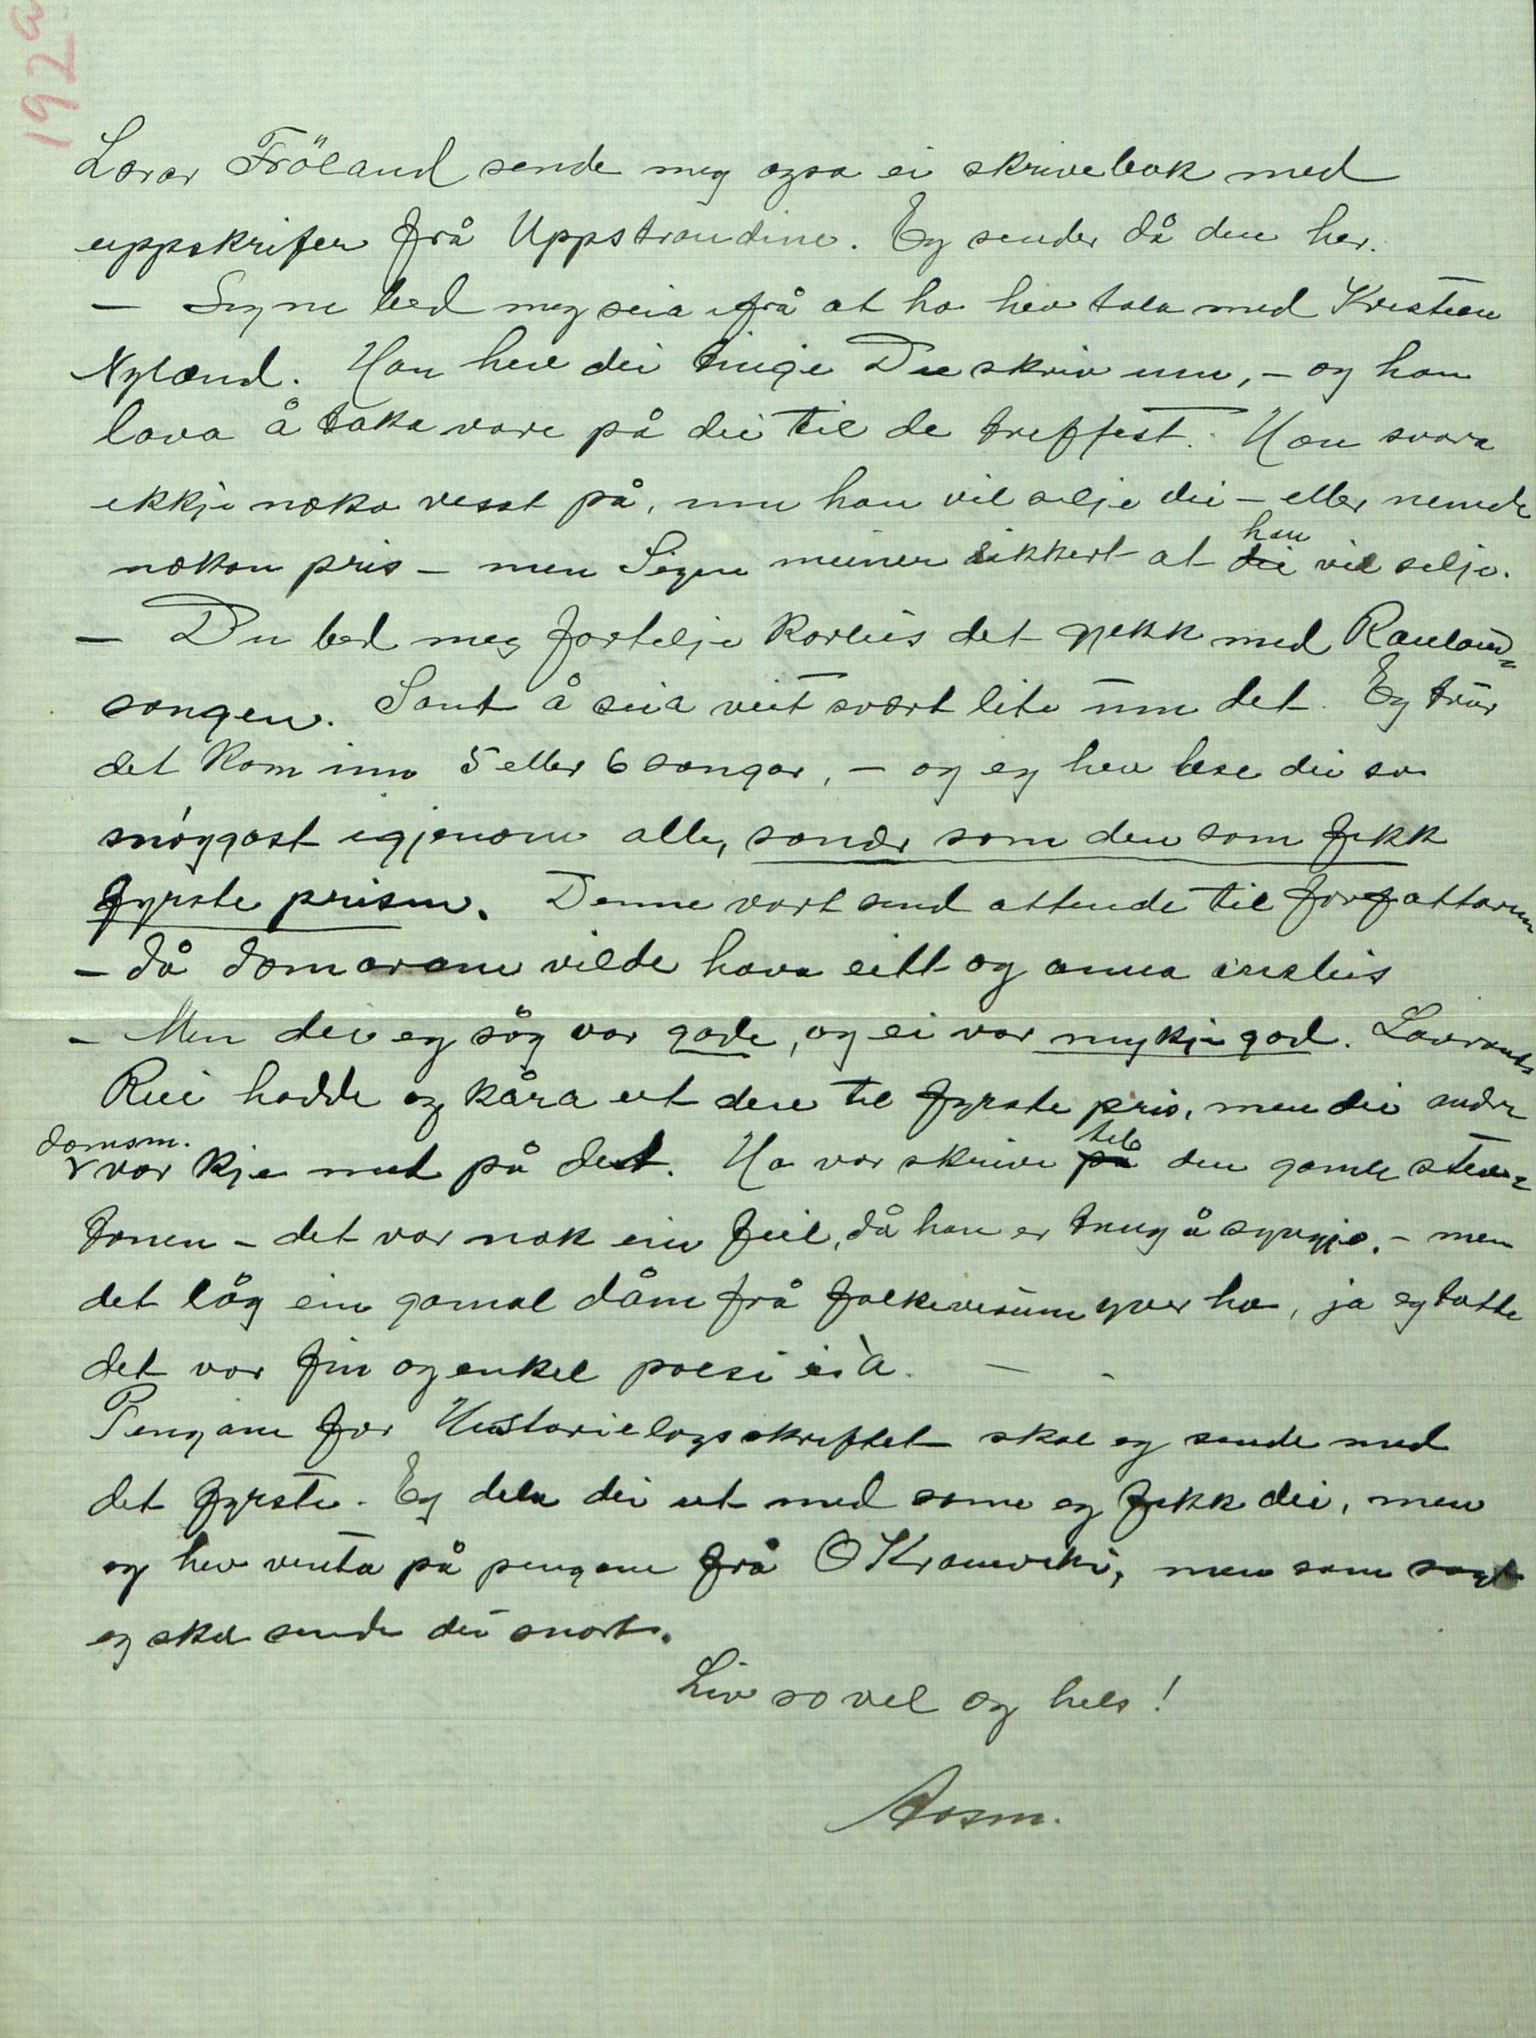 192a
Lærar Fröland sende meg ogso ei skrivebok med
uppskrifter frå Uppstrondine. Eg sender då den her.
— Signe bed meg seia ifrå at ho hev tala med Kristian
Nyland. Han hev dei tingi Du skriv um, — og han
lova å taka vare på dei til de treffest. Han svara
ikkje noko visst på, um han vil selje dei — eller nemde
nokon pris — men Signe meiner sikkert at die han vil selje.
— Du bed meg fortelja korleis det gjekk med Rauland-
songen. Sant å seia veit svært lite um det. Eg trur
det kom inn 5 eller 6 songar, — og eg hev lese dei so
snöggast igjenom alle, sonær som den som fekk
fyrste prisen. Denne vart send attende til forfattaren
— då domarane vilde hava eitt og anna ansleis
— Men dei eg såg var gode, og ei var mykje god. Lavrants
Rui hadde og kåra ut den til fyrste pris, men dei andre
domsm. var kje med på det. Ho var skrive på til den gamle stev-
tonen — det var nok ein feil, då han er tung å syngje. — men
det låg ein gamal dåm frå folkevisune yver ho, ja eg totte
det var fin og enkel poesi i ’a. —
Pengane for Historielagsskriftet skal eg sende med
det fyrste. Eg dela dei ut med same eg fekk dei, men
eg hev venta på pengane frå O Kromviki, men som sagt
eg skal sende dei snart.
Liv so vel og hels!
Aasm.